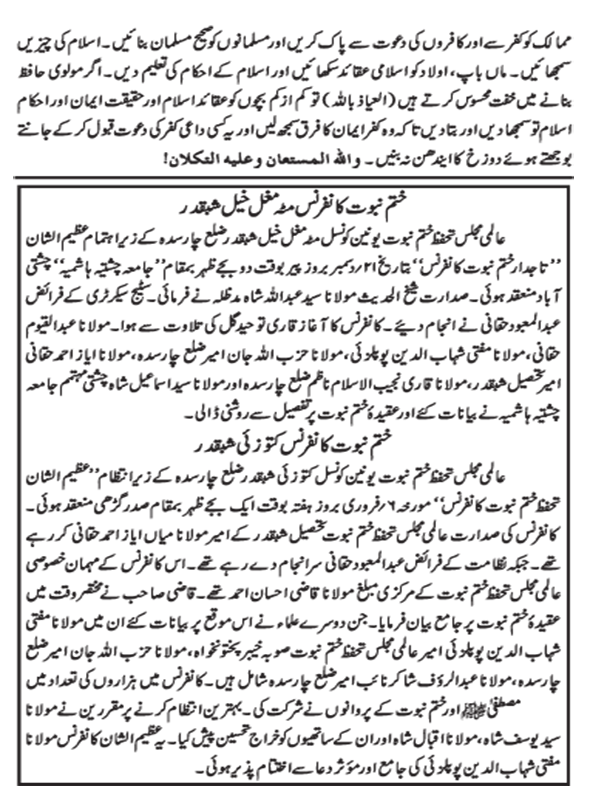 ممالک کو کفر سے اور کافروں کی دعوت سے پاک کریں اور مسلمانوں کو صحیح مسلمان بنائیں۔ اسلام کی چیزیں
سمجھائیں۔ ماں باپ، اولاد کو اسلامی عقائد سکھائیں اور اسلام کے احکام کی تعلیم دیں۔ اگر مولوی حافظ
بنانے میں خفت محسوس کرتے ہیں (العیاذ باللہ) تو کم از کم بچوں کو عقائد اسلام اور حقیقت ایمان اور احکام
اسلام تو سمجھا دیں اور بتا دیں تاکہ وہ کفر ایمان کا فرق سمجھ لیں اور یہ کسی داعی کفر کی دعوت قبول کر کے جانتے
بوجھتے ہوئے دوزخ کا ایندھن نہ بنیں۔ واللہ المستعان وعلیہ التکلان!
ختم نبوت کانفرنس مٹہ مغل خیل شبقدر
عالمی مجلس تحفظ ختم نبوت یونین کونسل مٹہ مغل خیل شبقدر ضلع چارسدہ کے زیر اہتمام عظیم الشان
’’تاجدار ختم نبوت کانفرنس‘‘ بتاریخ ۲۱؍دسمبر بروز پیر بوقت دو بجے ظہر بمقام ’’جامعہ چشتیہ ہاشمیہ‘‘ چشتی
آباد منعقد ہوئی۔ صدارت شیخ الحدیث مولانا سید عبداللہ شاہ مدظلہ نے فرمائی۔ سٹیج سیکرٹری کے فرائض
عبدالمعبود حقانی نے انجام دیئے۔ کانفرنس کا آغاز قاری توحید گل کی تلاوت سے ہوا۔ مولانا عبدالقیوم
حقانی، مولانا مفتی شہاب الدین پوپلزئی، مولانا حزب اللہ جان امیر ضلع چارسدہ، مولانا ایاز احمد حقانی
امیر تحصیل شبقدر، مولانا قاری نجیب الاسلام ناظم ضلع چارسدہ اور مولانا سید اسماعیل شاہ چشتی مہتمم جامعہ
چشتیہ ہاشمیہ نے بیانات کئے اور عقیدۂ ختم نبوت پر تفصیل سے روشنی ڈالی۔
ختم نبوت کانفرنس کتوزئی شبقدر
عالمی مجلس تحفظ ختم نبوت یونین کونسل کتوزئی شبقدر ضلع چارسدہ کے زیر انتظام ’’عظیم الشان
تحفظ ختم نبوت کانفرنس‘‘ مورخہ ۶؍فروری بروز ہفتہ بوقت ایک بجے ظہر بمقام صدر گڑھی منعقد ہوئی۔
کانفرنس کی صدارت عالمی مجلس تحفظ ختم نبوت تحصیل شبقدر کے امیر مولانا میاں ایاز احمد حقانی کر رہے
تھے۔ جبکہ نظامت کے فرائض عبدالمعبود حقانی سرانجام دے رہے تھے۔ اس کانفرنس کے مہمان خصوصی
عالمی مجلس تحفظ ختم نبوت کے مرکزی مبلغ مولانا قاضی احسان احمد تھے۔ قاضی صاحب نے مختصر وقت میں
عقیدۂ ختم نبوت پر جامع بیان فرمایا۔ جن دوسرے علماء نے اس موقع پر بیانات کئے ان میں مولانا مفتی
شہاب الدین پوپلزئی امیر عالمی مجلس تحفظ ختم نبوت صوبہ خیبر پختونخواہ، مولانا حزب اللہ جان امیر ضلع
چارسدہ، مولانا عبدالرؤف شاکر نائب امیر ضلع چارسدہ شامل ہیں۔ کانفرنس میں ہزاروں کی تعداد میں
مصطفیٰ ﷺ اور ختم نبوت کے پروانوں نے شرکت کی۔ بہترین انتظام کرنے پر مقررین نے مولانا
سید یوسف شاہ، مولانا اقبال شاہ اور ان کے ساتھیوں کو خراج تحسین پیش کیا۔ یہ عظیم الشان کانفرنس مولانا
مفتی شہاب الدین پوپلزئی کی جامع اور مؤثر دعا سے اختتام پذیر ہوئی۔